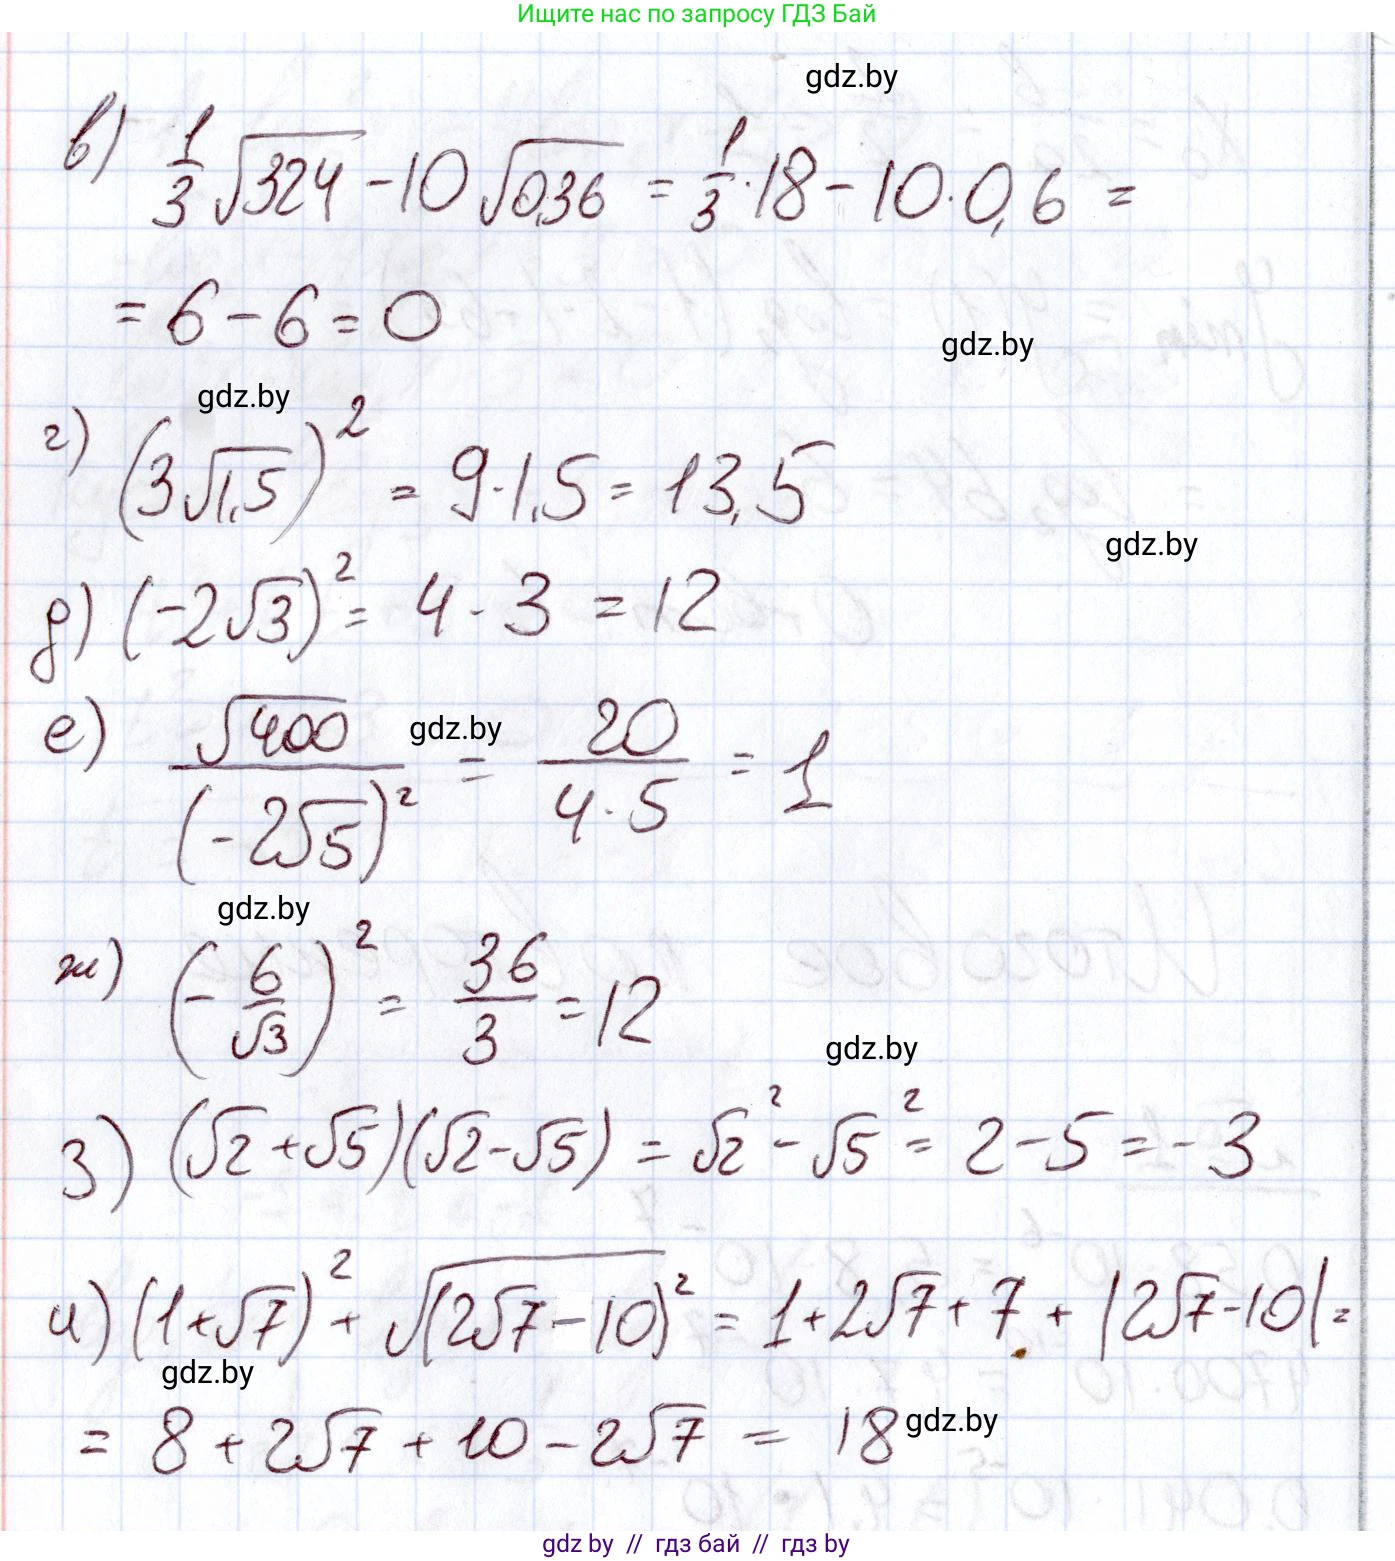 Ищите нас по запросу ГДЗ Бай
gdz.by
в) 1/3 √324 - 10 √0,36 = 1/3 · 18 - 10 · 0,6 =
= 6 - 6 = 0
gdz.by
gdz.by
г) (3√1,5)² = 9 · 1,5 = 13,5
gdz.by
д) (-2√3)² = 4 · 3 = 12
е) √400 / (-2√5)² = 20 / (4 · 5) = 1
gdz.by
gdz.by
ж) (- 6/√3)² = 36/3 = 12
gdz.by
з) (√2 + √5)(√2 - √5) = √2² - √5² = 2 - 5 = -3
и) (1 + √7)² + √(2√7 - 10)² = 1 + 2√7 + 7 + |2√7 - 10| =
gdz.by
= 8 + 2√7 + 10 - 2√7 = 18
gdz.by
gdz by // гдз бай // гдз by